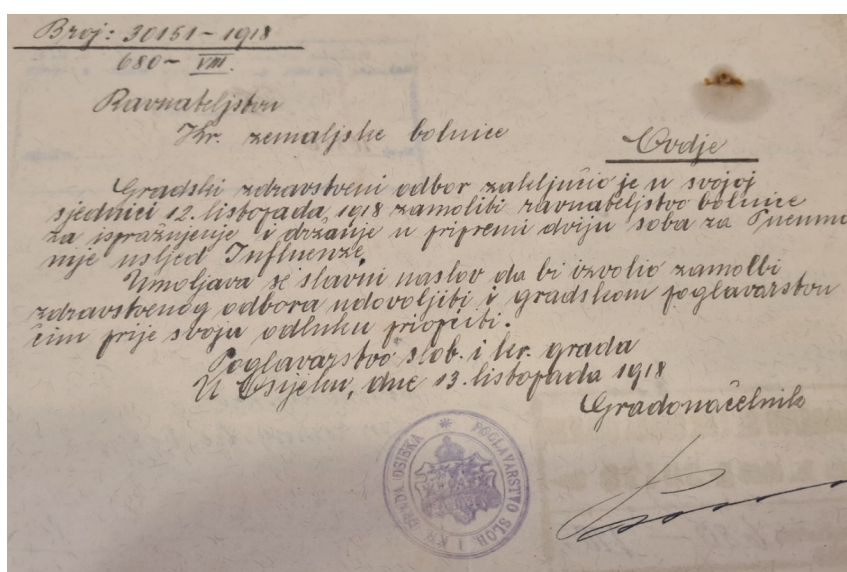 Broj: 30151-1918
680- VIII.
Ravnateljstvu
Kr. zemaljske bolnice
Ovdje
Gradski zdravstveni odbor zaključio je u svojoj
sjednici 12. listopada 1918 zamoliti ravnateljstvo bolnice
za ispražnjenje i držanje u pripremi dviju soba za Pneumo
nije usljed Influenze.
Umoljava se slavni naslov da bi izvolio zamolbi
zdravstvenog odbora udovoljiti i gradskom poglavarstvu
čim prije svoju odluku priopćiti.
Poglavarstvo slob. i kr. grada
U Osijeku, dne 13. listopada 1918
Gradonačelnik
POGLAVARSTVO SLOB. I KR. GRADA OSIEKA